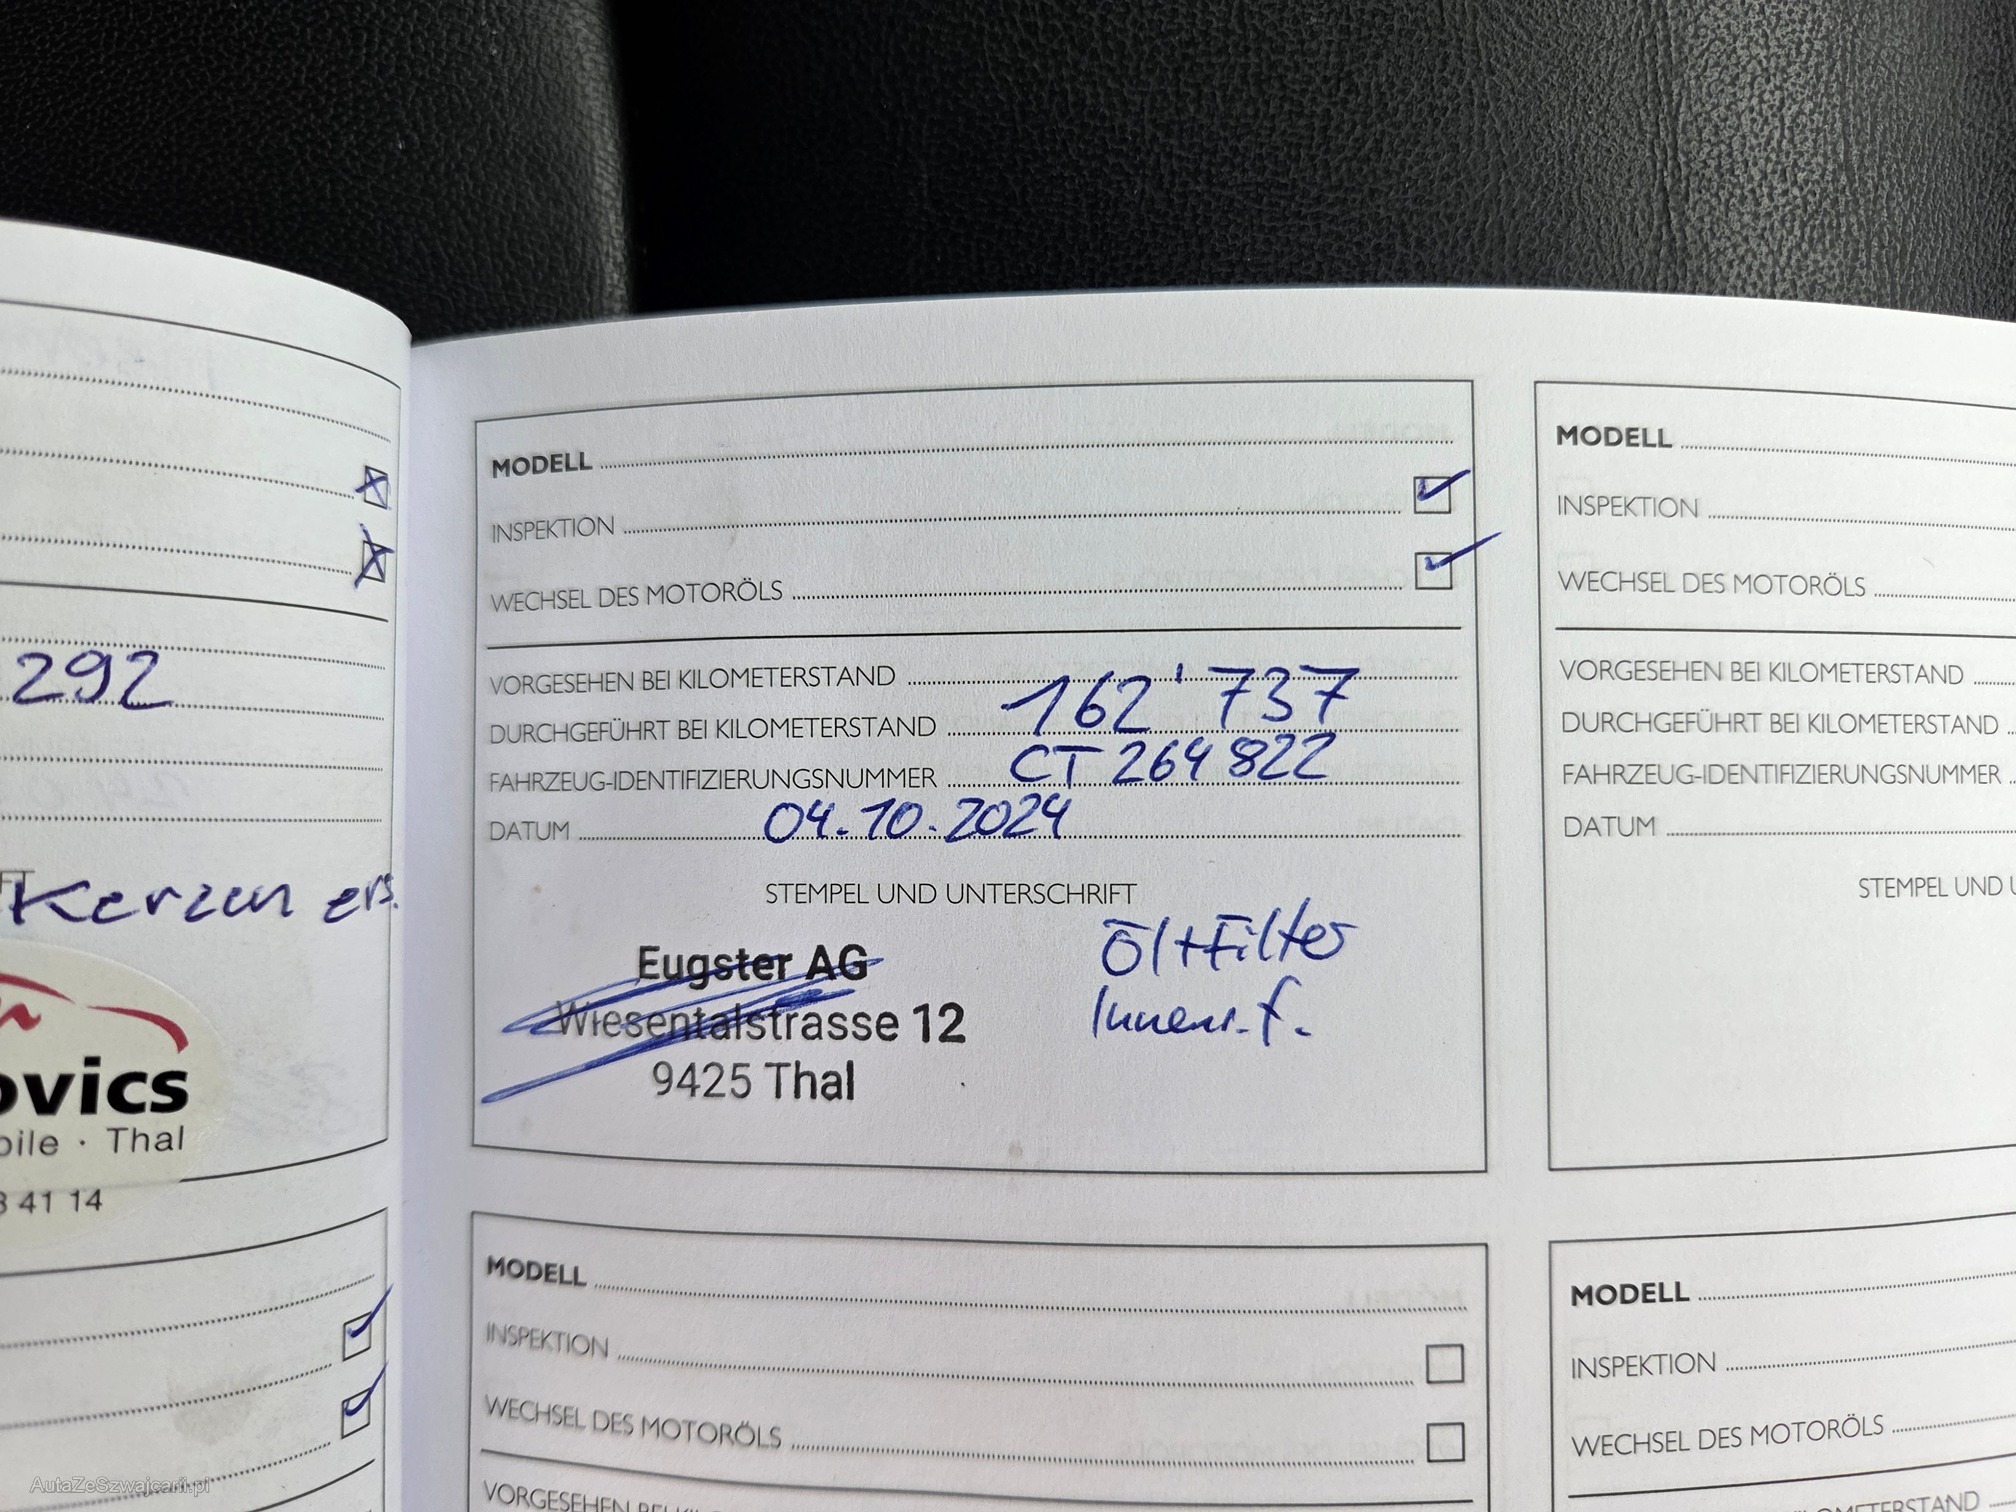 292
Kerzen ers.
ovics
bile · Thal
3 41 14
MODELL
INSPEKTION
WECHSEL DES MOTORÖLS
VORGESEHEN BEI KILOMETERSTAND
DURCHGEFÜHRT BEI KILOMETERSTAND 162'737
FAHRZEUG-IDENTIFIZIERUNGSNUMMER CT 264 822
DATUM 04.10.2024
STEMPEL UND UNTERSCHRIFT
Eugster AG
Wiesentalstrasse 12
9425 Thal
Öl+Filter
Innenr.f.
MODELL
INSPEKTION
WECHSEL DES MOTORÖLS
VORGESEHEN BEI KILOMETERSTAND
DURCHGEFÜHRT BEI KILOMETERSTAND
FAHRZEUG-IDENTIFIZIERUNGSNUMMER
DATUM
STEMPEL UND U
MODELL
INSPEKTION
WECHSEL DES MOTORÖLS
VORGESEHEN BEI
MODELL
INSPEKTION
WECHSEL DES MOTORÖLS
KILOMETERSTAND
AutaZeSzwajcarii.pl